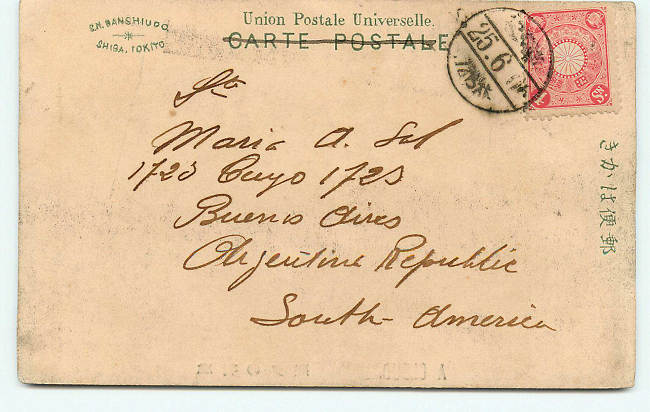 S.N. BANSHIUDO
SHIBA, TOKIYO
Union Postale Universelle.
CARTE POSTALE
25.6
4 Sn.
きかは便郵
Sta
Maria A. Sal
1723 Cuyo 1723
Buenos Aires
Argentine Republic
South-America